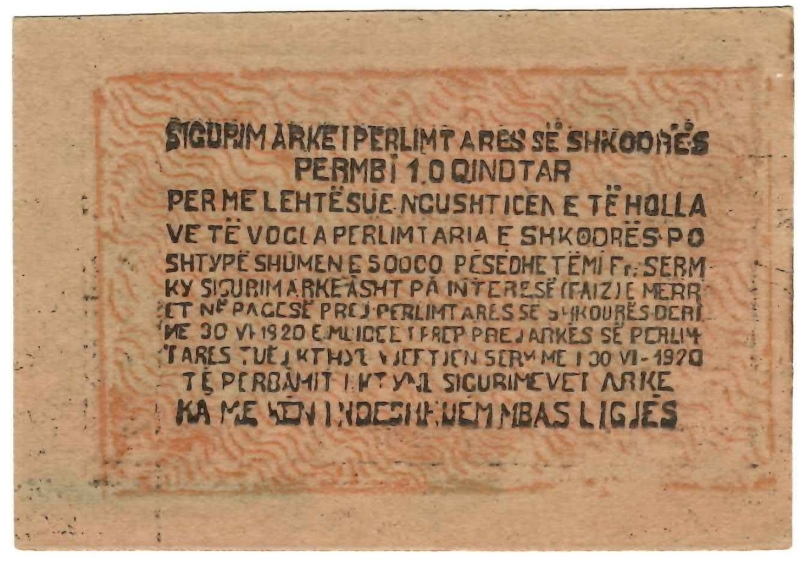 SIGURIM ARKE I PERLIMTARES SË SHKODRËS
PERMBI 1.0 QINDTAR
PER ME LEHTËSUE NGUSHTICEN E TË HOLLA
VE TË VOGLA PERLIMTARIA E SHKODRËS PO
SHTYPË SHUMEN E 50000 PESEDHETËMI Fr. SERM
KY SIGURIM ARKE ÂSHT PÀ INTERESË (FAIZ) E MERR
ET NË PAGESË PREJ PERLIMTARES SË SHKODRËS DERI
ME 30 VI 1920 E PREJ ARKËS SË PERLIM
TARES TUE SERM ME 30 VI-1920
TË PERBÂMIT SIGURIMEVET ARKE
KA ME KËN MBAS LIGJËS